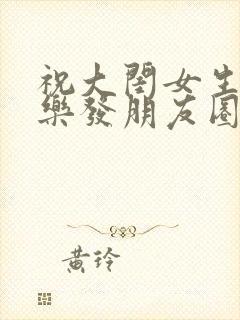 祝大闺女生
樂發朋友圈
黄玲